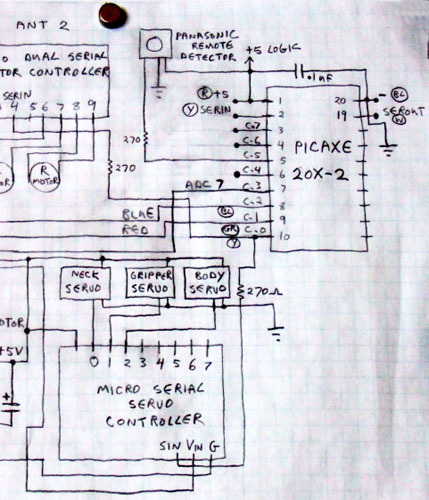 ANT 2
O DUAL SERIAL
TOR CONTROLLER
SERIN
4 5 6 7 8 9
R
MOTOR
PANASONIC
REMOTE
DETECTOR
+5 LOGIC
270
270
R +5
Y SERIN
C-7
C-6
C-5
C-4
C-3
C-2
C-1
C-0
1
2
3
4
5
6
7
8
9
10
PICAXE
20X-2
20
19
- BL
SEROUT
W
ADC 7
BLUE
RED
BL
GR
Y
NECK
SERVO
GRIPPER
SERVO
BODY
SERVO
270Ω
OTOR
+5V
+
0 1 2 3 4 5 6 7
MICRO SERIAL
SERVO
CONTROLLER
SIN VIN G